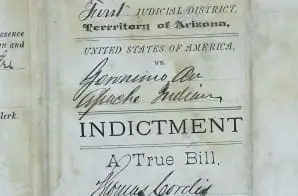 First JUDICIAL DISTRICT,
Terrritory of Arizona,
UNITED STATES OF AMERICA,
VS.
Geronimo An
Apache Indian
INDICTMENT
A True Bill,
Thomas
esence
on and
lerk.